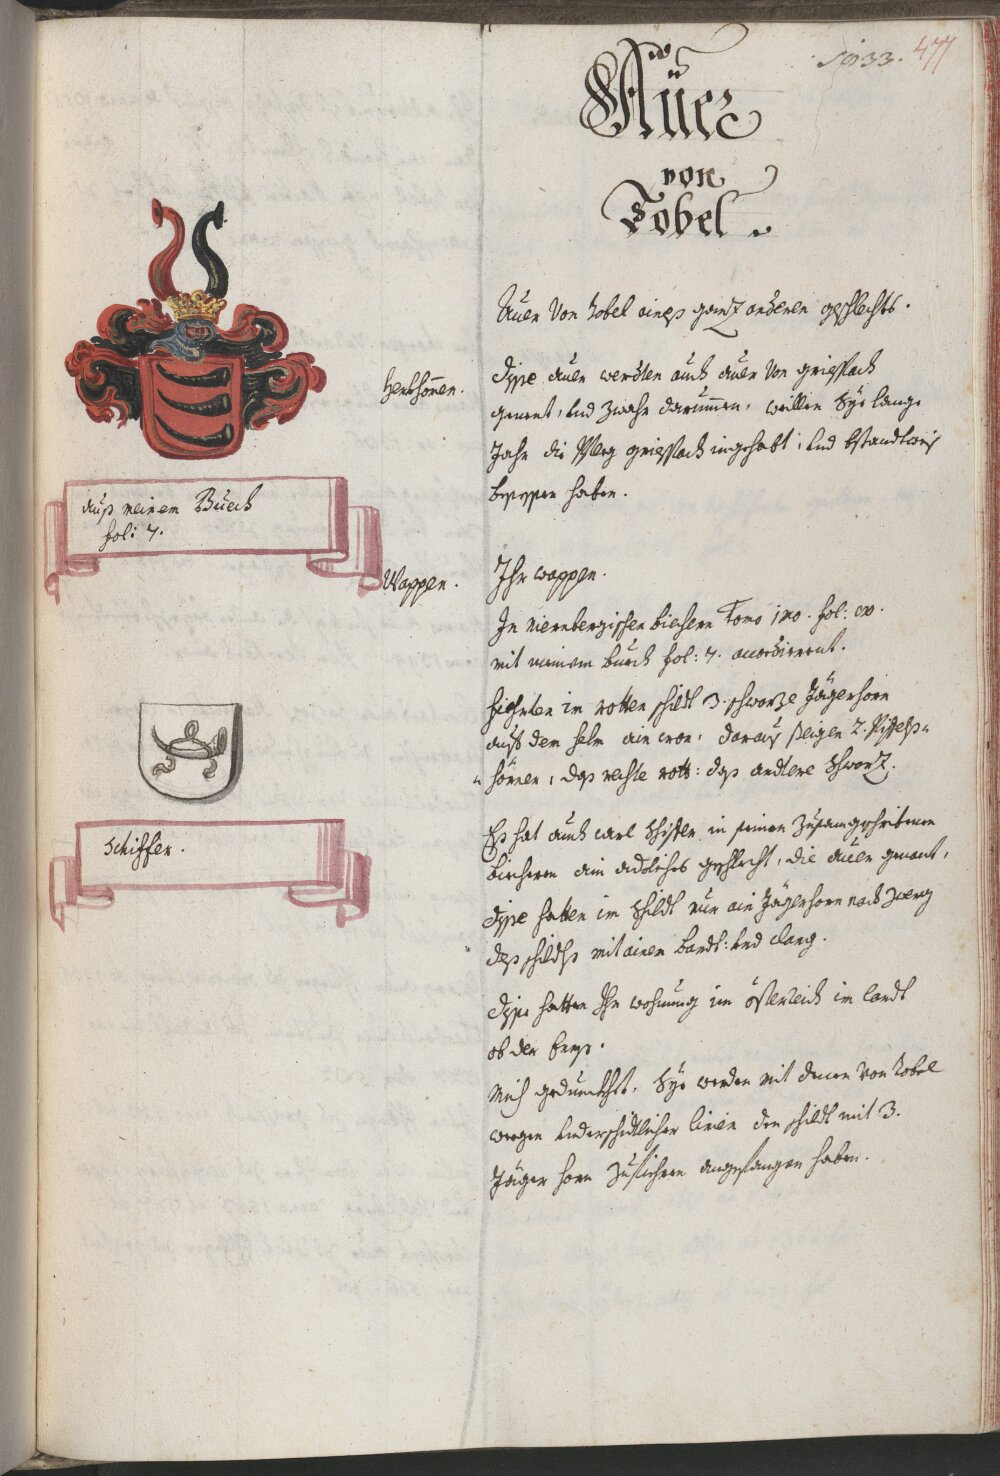 477
Aüer
von
Tobel.
Auer Von Tobel aineß gantz anderen geschlechts.
herkhomen.
Disse auer werdten auch auer Von griesstach
genent, Und zwahr darummen, weillen Sye lange
Jahr die Pfleg griesstach ingehabt, Und bstandtweis
besessen haben.
auß meinem Buech
fol: 7.
Wappen.
Ihr wappen.
In niernbergischen biechern Tomo imo. fol:
mit meinem buech fol: 7. accordierent.
fiehrten im rotten schildt 3. schwarze Jägerhorn
auf dem helm ain cron, darauß steigen 2. Piffelß-
hörner, das rechte rott: das andtere Schwartz.
Schiffer.
Es hat auch carl Schiffer in seinen zusamgeschribenen
biechern ain adeliches geschlecht, die auer genant,
Disse hatten im Schildt nur ain Jägerhorn nach zwerg
deß schildtß mit ainem bandt: Und
Disse hatten Ihr wohnung im österreich im landt
ob der Ennß.
Mich gedunckhet, Sye werden mit denen Von Tobel
wegen Underschidtlicher linien den schildt mit 3.
Jäger horn zufiehren angefangen haben.